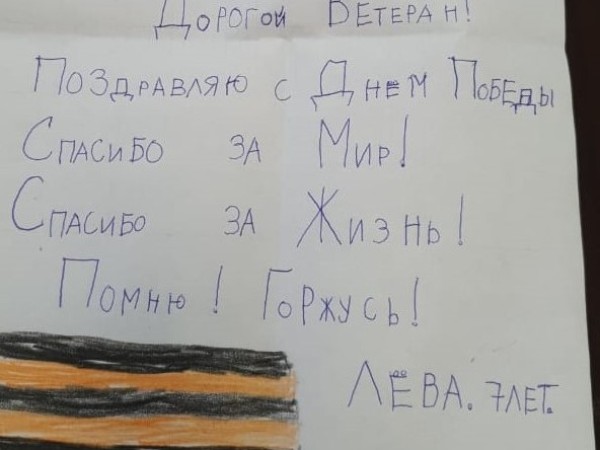 Дорогой Ветеран!
Поздравляю с Днем Победы
Спасибо за Мир!
Спасибо за Жизнь!
Помню! Горжусь!
Лёва. 7 лет.